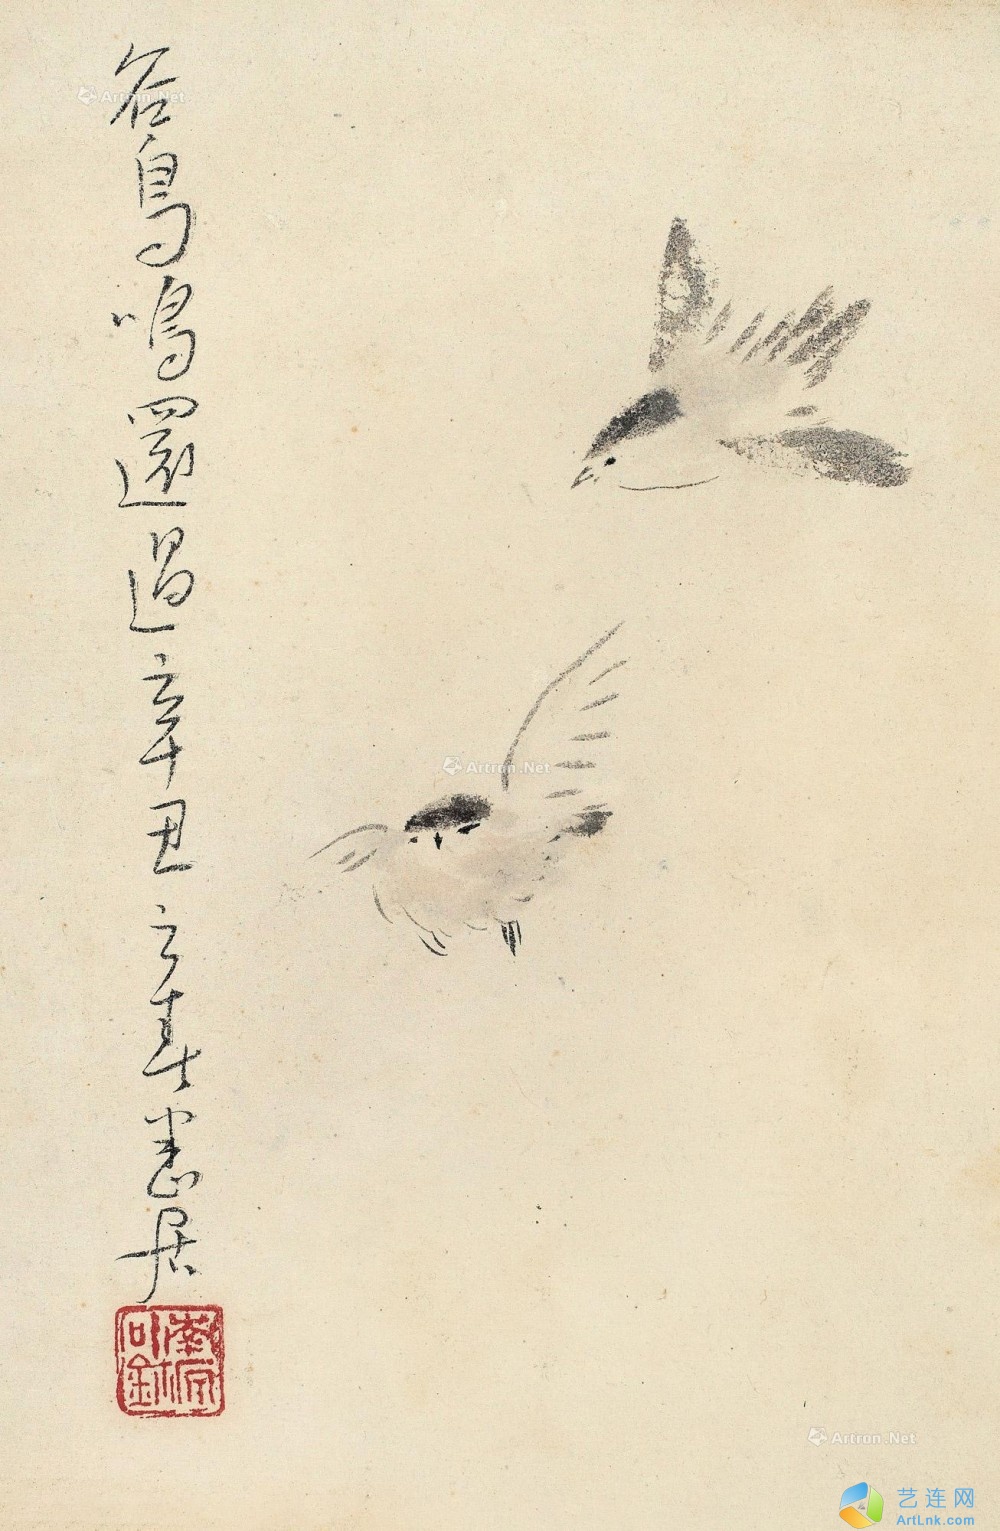 谷鳥鳴還過辛丑之春居
Artron.Net
Artron.Net
Artron.Net
艺连网
ArtLnk.com